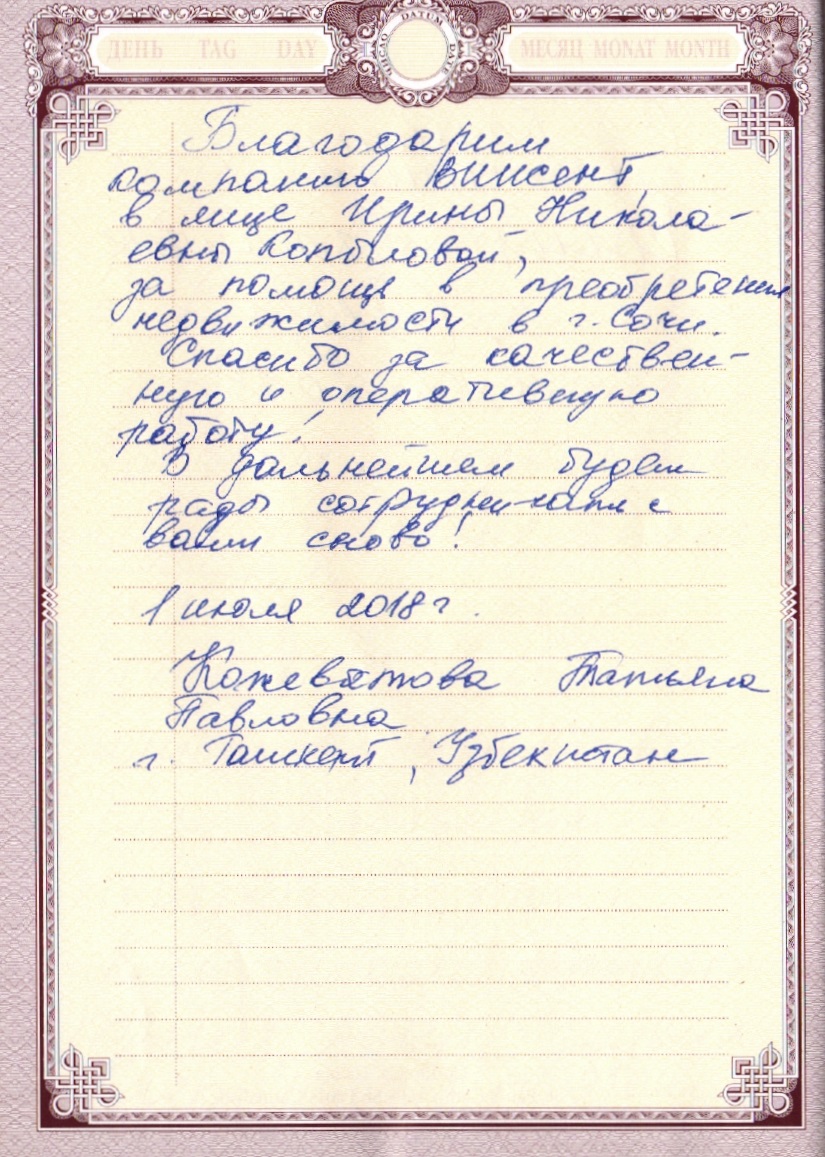 ДЕНЬ TAG DAY DATUM МЕСЯЦ MONAT MONTH
Благодарим
компанию Винсент,
в лице Ирины Никола-
евны Копыловой,
за помощь в преобретении
недвижимости в г. Сочи.
Спасибо за качествен-
ную и оперативную
работу!
В дальнейшем будем
рады сотрудничать с
вами снова!
1 июля 2018 г.
Татьяна
Павловна
г. Ташкент, Узбекистан